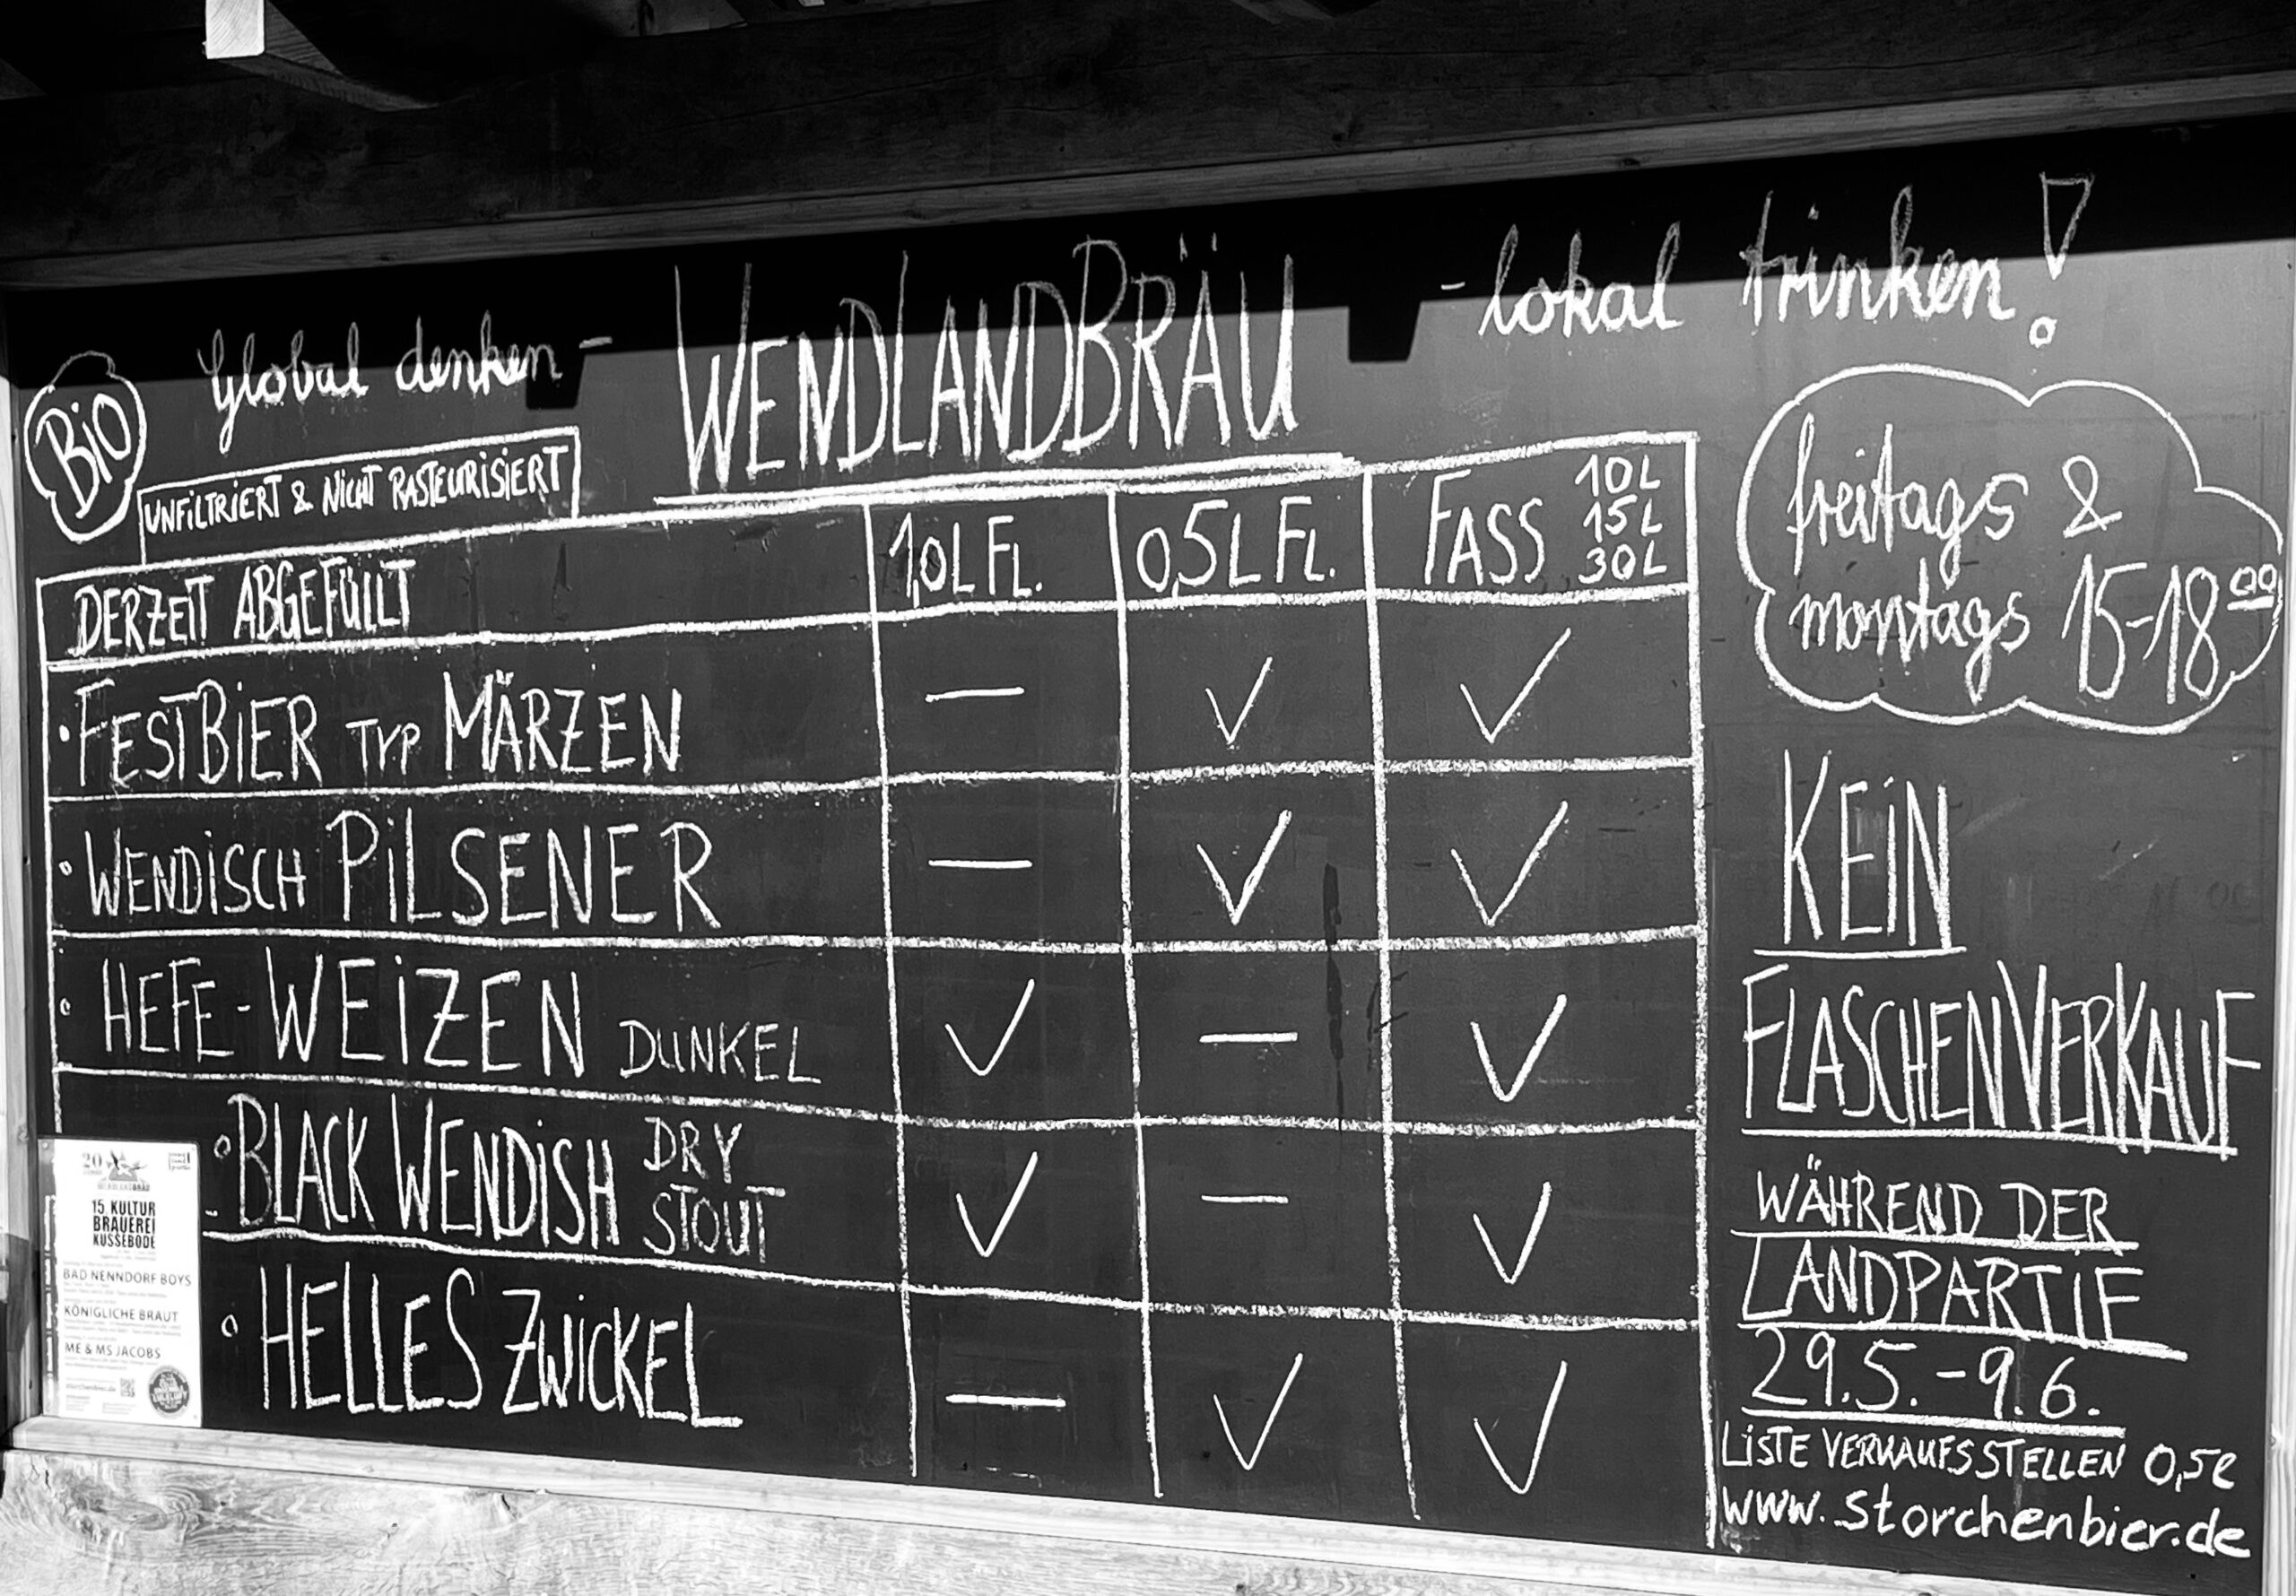 Global denken - WENDLANDBRÄU - lokal trinken!
BiO
UNFiLTRiERT & NiCHT PASTEURiSiERT
DERZEIT ABGEFÜLLT 1,0L FL. 0,5L FL. FASS 10L 15L 30L
• FESTBiER TYP MÄRZEN — ✓ ✓
• WENDiSCH PiLSENER — ✓ ✓
• HEFE-WEiZEN DUNKEL ✓ — ✓
• BLACK WENDiSH DRY STOUT ✓ — ✓
• HELLES ZWiCKEL — ✓ ✓
freitags &
montags 15-18⁰⁰
KEiN
FLASCHENVERKAUF
WÄHREND DER
LANDPARTiE
29.5.-9.6.
LiSTE VERKAUFSSTELLEN 0,5l
www.storchenbier.de
20
WENDLANDBRÄU
15. KULTUR
BRAUEREI
KUSSEBODE
BAD NENNDORF BOYS
KÖNIGLICHE BRAUT
ME & MS JACOBS
storchenbier.de